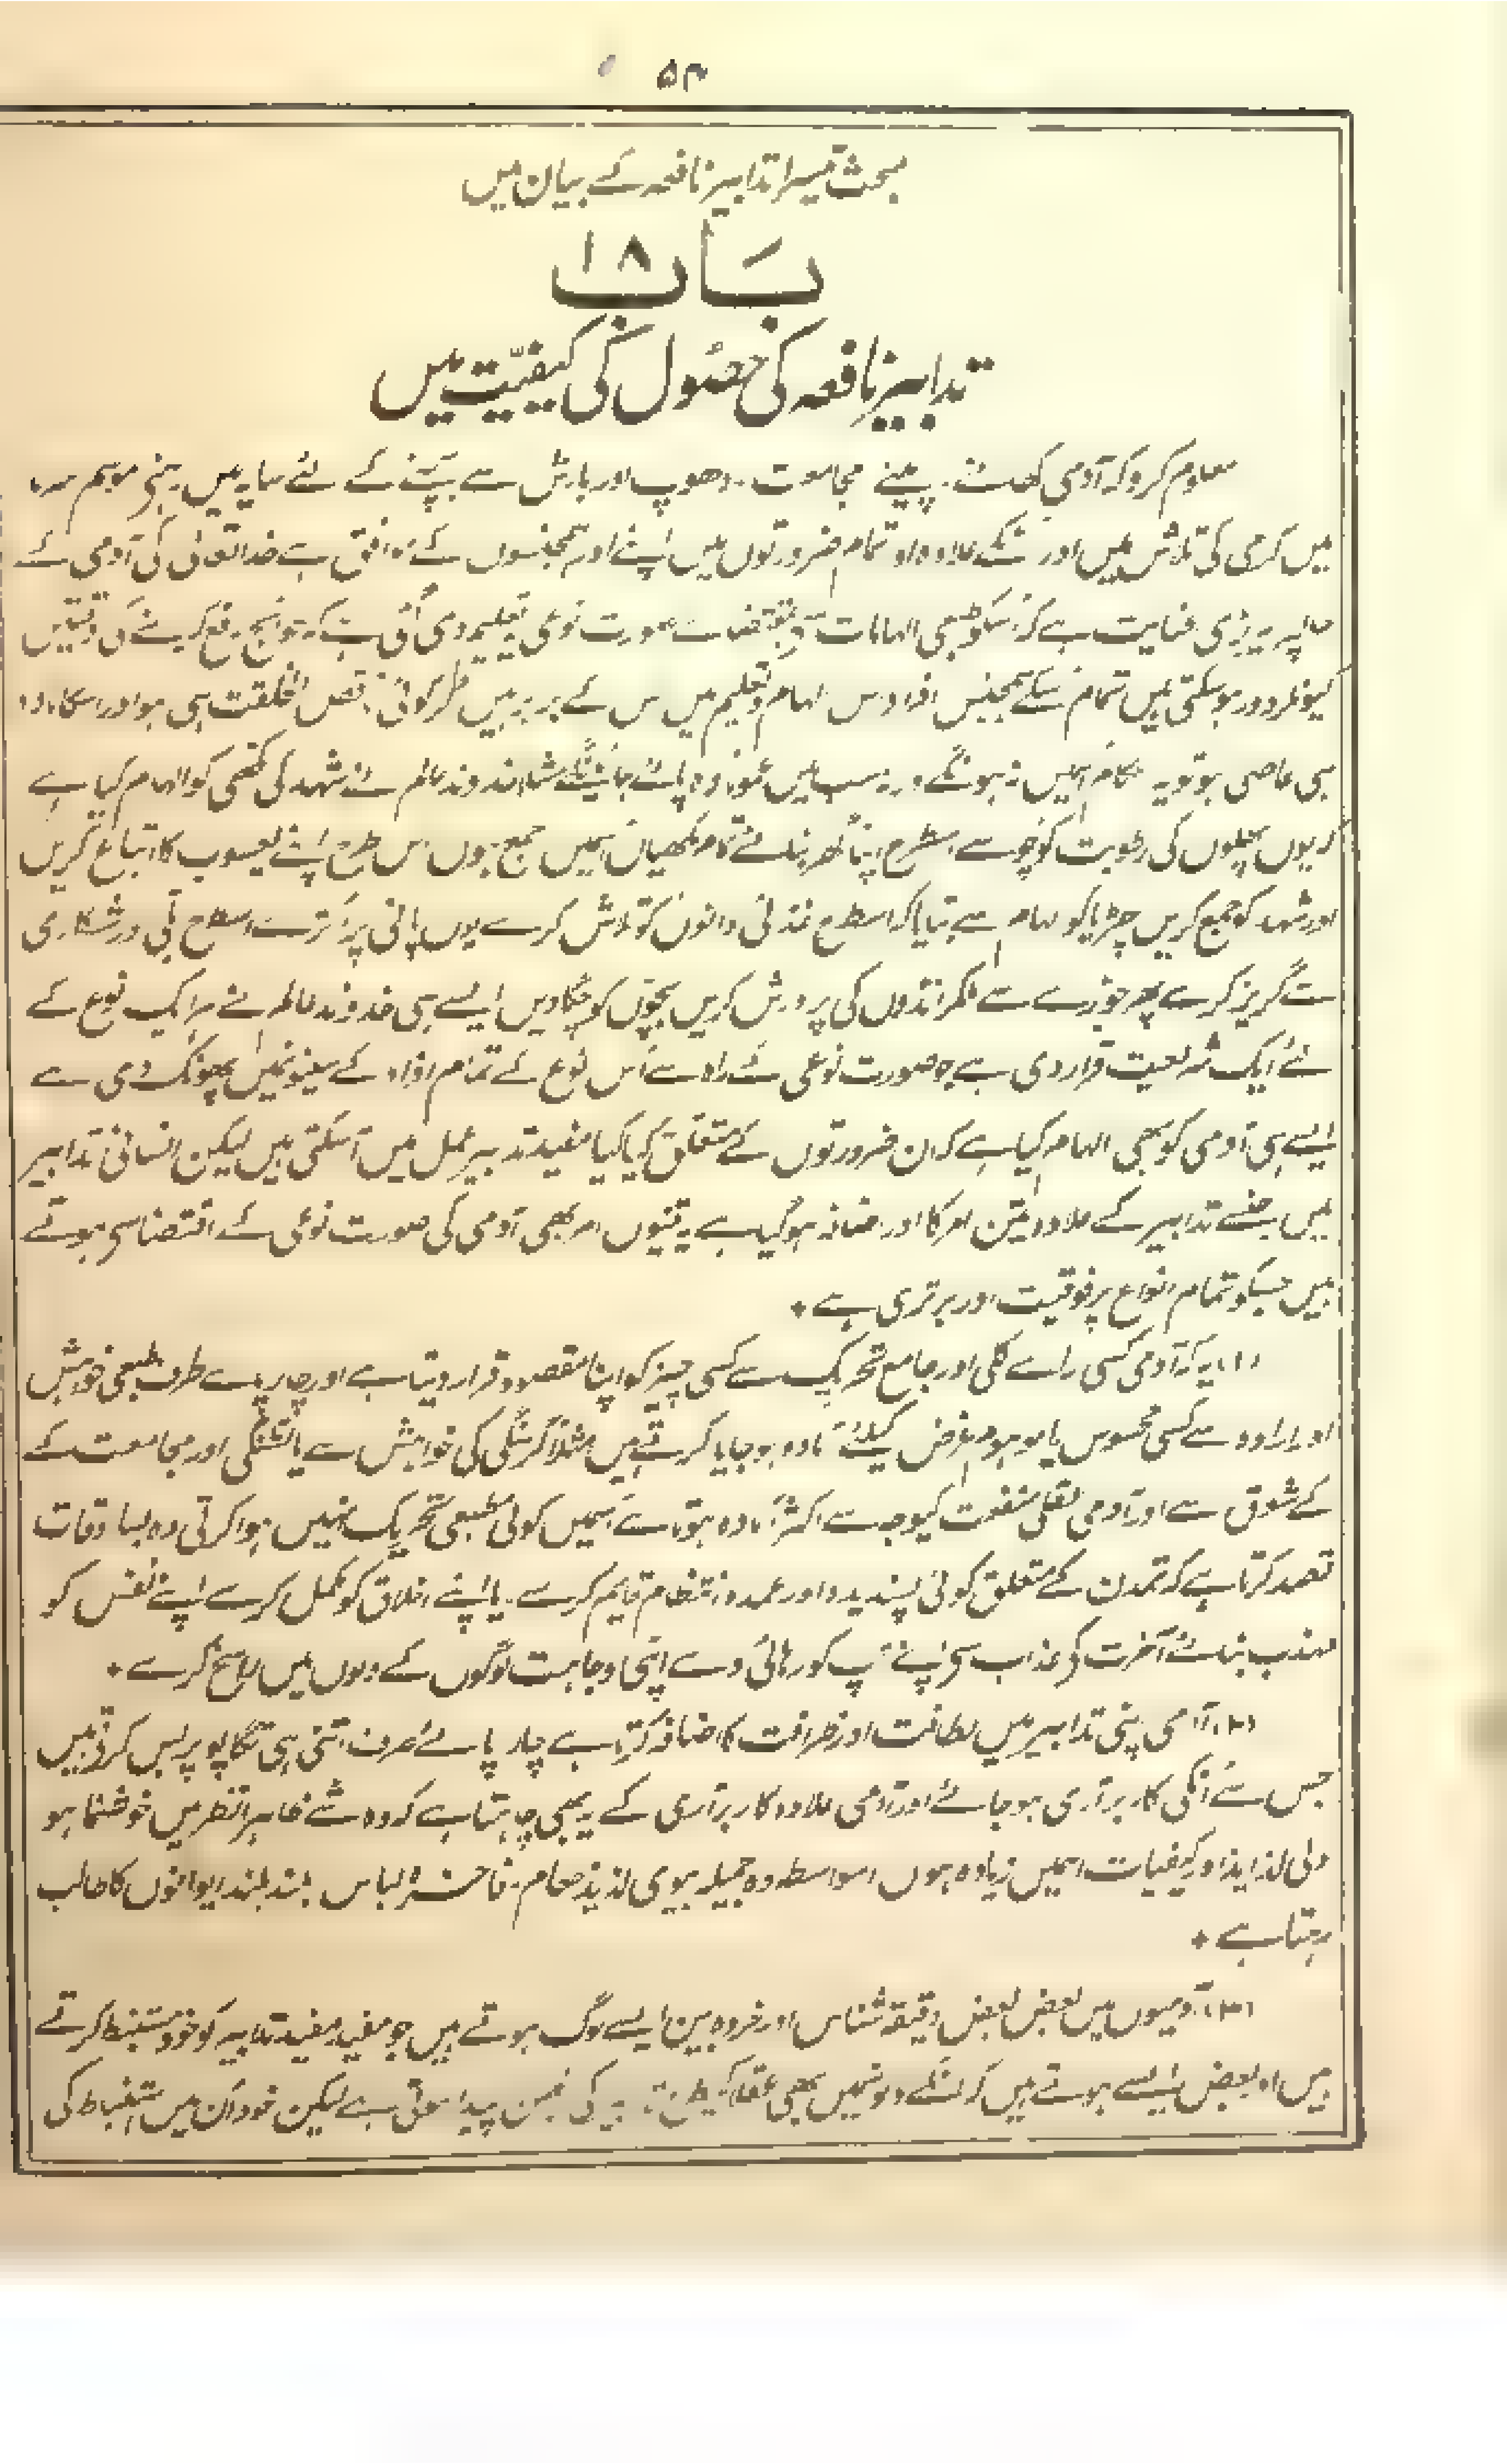 ۵۴
مبحث تیسرا تدابیر نافعہ کے بیان میں
باب ۱۸
تدابیر نافعہ کی حصول کی کیفیت میں
معلوم کرو کہ آدمی کھانے۔ پینے مجامعت۔ دھوپ اور بارش سے بچنے کے لئے سایہ میں رہنی موسم سرما
میں گرمی کی تلاش میں اور انکے علاوہ اور تمام ضرورتوں میں اپنے اور ہمجنسوں کے موافق ہے خدا تعالیٰ کی آدمی کے
حال پر یہ بڑی عنایت ہے کہ اسکو طبعی الہامات صورت نوعی تعلیم دی گئی ہے کہ حوائج رفع کرنے کی دقتیں
کیونکر دور ہو سکتی ہیں تمام اسکے ہمجنس افراد اس الہام و تعلیم میں اس کے برابر ہیں مگر کوئی ناقص الخلقت ہی ہو اور اسکا مادہ
ہی عاصی ہو تو یہ احکام اسمیں نہ ہونگے ورنہ سب میں عموماً وہ پائے جائینگے مثلاً خداوند عالم نے شہد کی مکھی کو الہام کیا ہے
کہ یوں پھلوں کی رطوبت کو چوسے اسطرح اپنا گھر بنائے تمام مکھیاں اسمیں جمع ہوں اس طرح اپنے یعسوب کا اتباع کریں
اور شہد کو جمع کریں چڑیا کو الہام سے بتایا کہ اسطرح غذائی دانوں کو تلاش کرے یوں پانی پر اترے اسطرح بلی اور شکاری
سے گریز کرے پھر جوڑے سے ملکر انڈوں کی پرورش کریں بچوں کو چگاویں ایسے ہی خداوند عالم نے ہر ایک نوع کے
لئے ایک شریعت قرار دی ہے جو صورت نوعی کے راہ سے اس نوع کے تمام افراد کے سینونمیں پھونک دی ہے
ایسے ہی آدمی کو بھی الہام کیا ہے کہ ان ضرورتوں کے متعلق کیا کیا مفید تدبیر عمل میں آسکتی ہیں لیکن انسانی تدابیر
میں بعضے تدابیر کے علاوہ تین امر کا اور اضافہ ہو گیا ہے یہ تینوں امر بھی آدمی کی صورت نوعی کے اقتضا سے ہوتے
ہیں جسکو تمام انواع پر فوقیت اور برتری ہے ٭
(۱) یہ کہ آدمی کسی رائے کلی اور جامع تحریک سے کسی چیز کو اپنا مقصود قرار دیتا ہے اور چارپائے صرف طبعی خواہش
اور ارادہ سے کسی محسوس یا موہوم غرض کیلئے آمادہ ہو جایا کرتے ہیں مثلاً گرسنگی کی خواہش سے یا تشنگی اور مجامعت کے
کے شوق سے اور آدمی عقلی منفعت کیوجہ سے اکثر آمادہ ہوتا ہے اسمیں کوئی طبعی تحریک نہیں ہوا کرتی وہ بسا اوقات
قصد کرتا ہے کہ تمدن کے متعلق کوئی پسندیدہ اور عمدہ انتظام قایم کرے۔ یا اپنے اخلاق کو مکمل کرے اپنے نفس کو
مہذب بنائے آخرت کی عذاب سے اپنے آپ کو رہائی دے اپنی وجاہت لوگوں کے دلوں میں راسخ کرے ٭
(۲) آدمی اپنی تدابیر میں لطافت اور ظرافت کا اضافہ کرتا ہے چارپائے صرف اتنی ہی تگاپو پر بس کرتے ہیں
جس سے انکی کاربرآری ہو جائے اور آدمی علاوہ کاربرآری کے یہ بھی چاہتا ہے کہ وہ شے ظاہر النظر میں خوشنما ہو
دلی لذاید اور کیفیات اسمیں زیادہ ہوں اسواسطے وہ جمیلہ بیوی لذیذ طعام۔ فاخرہ لباس بلند بلند ایوانوں کا طالب
رہتا ہے ٭
(۳) آدمیوں میں بعض بعض دقیقہ شناس اور خردہ بین ایسے لوگ ہوتے ہیں جو مفید مفید تدابیر کو خود مستنبط کرتے
ہیں اور بعض ایسے ہوتے ہیں کہ انکے دلونمیں بھی عقلا کیطرح تدابیر کی پیدا ہوتی ہے لیکن خود ان میں استنباط کی